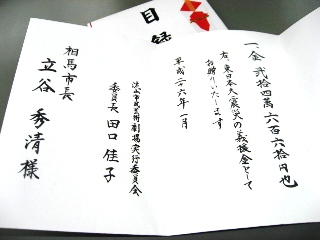 目録
一、金 弐拾四萬六百六拾円也
右、東日本大震災の義援金として
お贈りいたします
平成二十六年一月
流山市民芸術劇場実行委員会
委員長 田口佳子
相馬市長
立谷秀清様